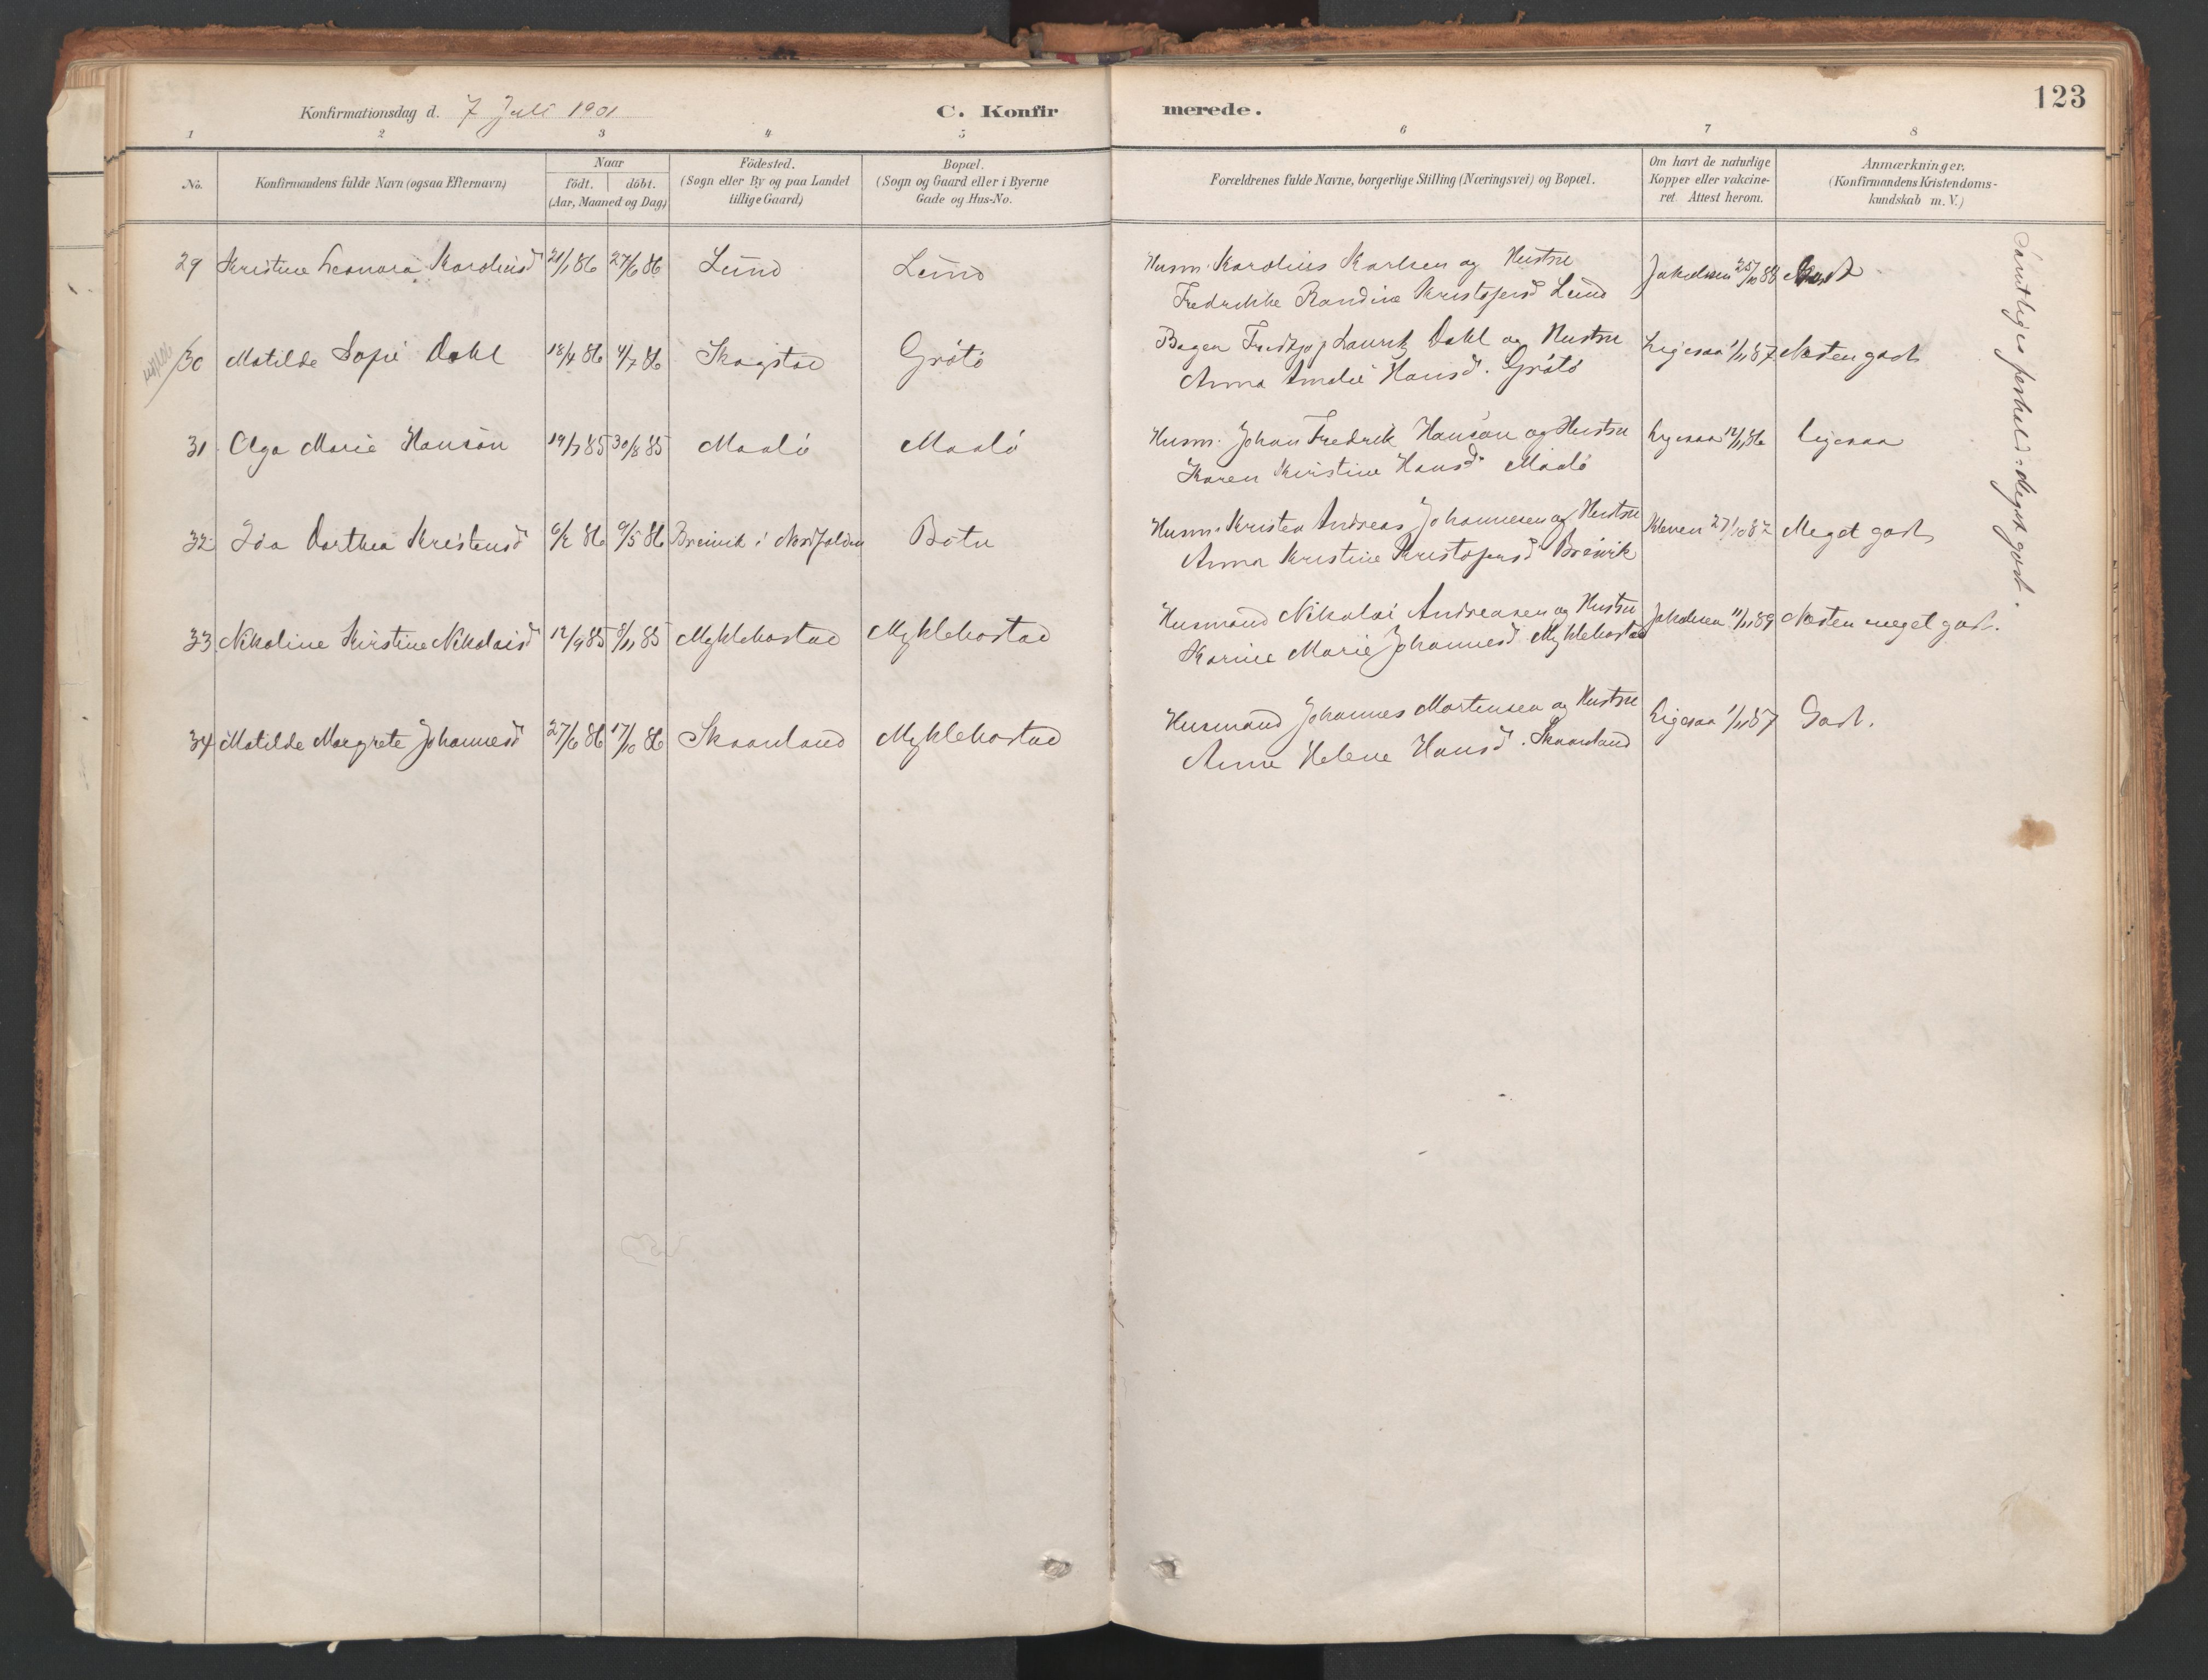 123
Konfirmationsdag d. 7 Juli 1901
C. Konfirmerede.
1 2 3 4 5 6 7 8
No. Konfirmandens fulde Navn (ogsaa Efternavn) Naar födt. döbt. (Aar, Maaned og Dag) Födested. (Sogn eller By og paa Landet tillige Gaard) Bopæl. (Sogn og Gaard eller i Byerne Gade og Hus-No. Forældrenes fulde Navne, borgerlige Stilling (Næringsvei) og Bopæl. Om havt de naturlige Kopper eller vakcineret. Attest herom. Anmærkninger. (Konfirmandens Kristendomskundskab m. V.)
29 Kristine Leonora Karoliusd 21/1 86 27/6 86 Lund Lund Husm. Karolius Karlsen og Hustru Jakobsen 25/10 88 Godt
Fredrikke Randine Kristofersd Lund
30 Matilde Sofie Dahl 18/4 86 4/7 86 Skagstad Grötö Bager Fridtjof Lauritz Dahl og Hustru Ligesaa 1/11 87 Næsten godt
Anna Amalie Hansd. Grötö
31 Olga Marie Hanson 19/7 85 30/8 85 Maalö Maalö Husm. Johan Fredrik Hanson og Hustru Ligesaa 12/11 86 Ligesaa
Karen Kirstine Hansd. Maalö
32 Ida Dorthea Kristensd 6/2 86 9/5 86 Breivik i Nordfolden Botn Husm. Kristen Andreas Johannesen og Hustru Kleven 27/10 87 Meget godt
Anna Kristine Kristofersd Breivik
33 Nikoline Kirstine Nikolaisd 12/9 85 8/11 85 Myklebostad Myklebostad Husmand Nikolai Andreasen og Hustru Jakobsen 11/11 89 Næsten meget godt.
Karine Marie Johannesd Myklebostad
34 Matilde Margrete Johannesd 27/6 86 17/10 86 Skaanland Myklebostad Husmand Johannes Mortensen og Hustru Ligesaa 1/11 87 Godt.
Anne Helene Hansd. Skaanland
Samtliges forhold: Meget godt.